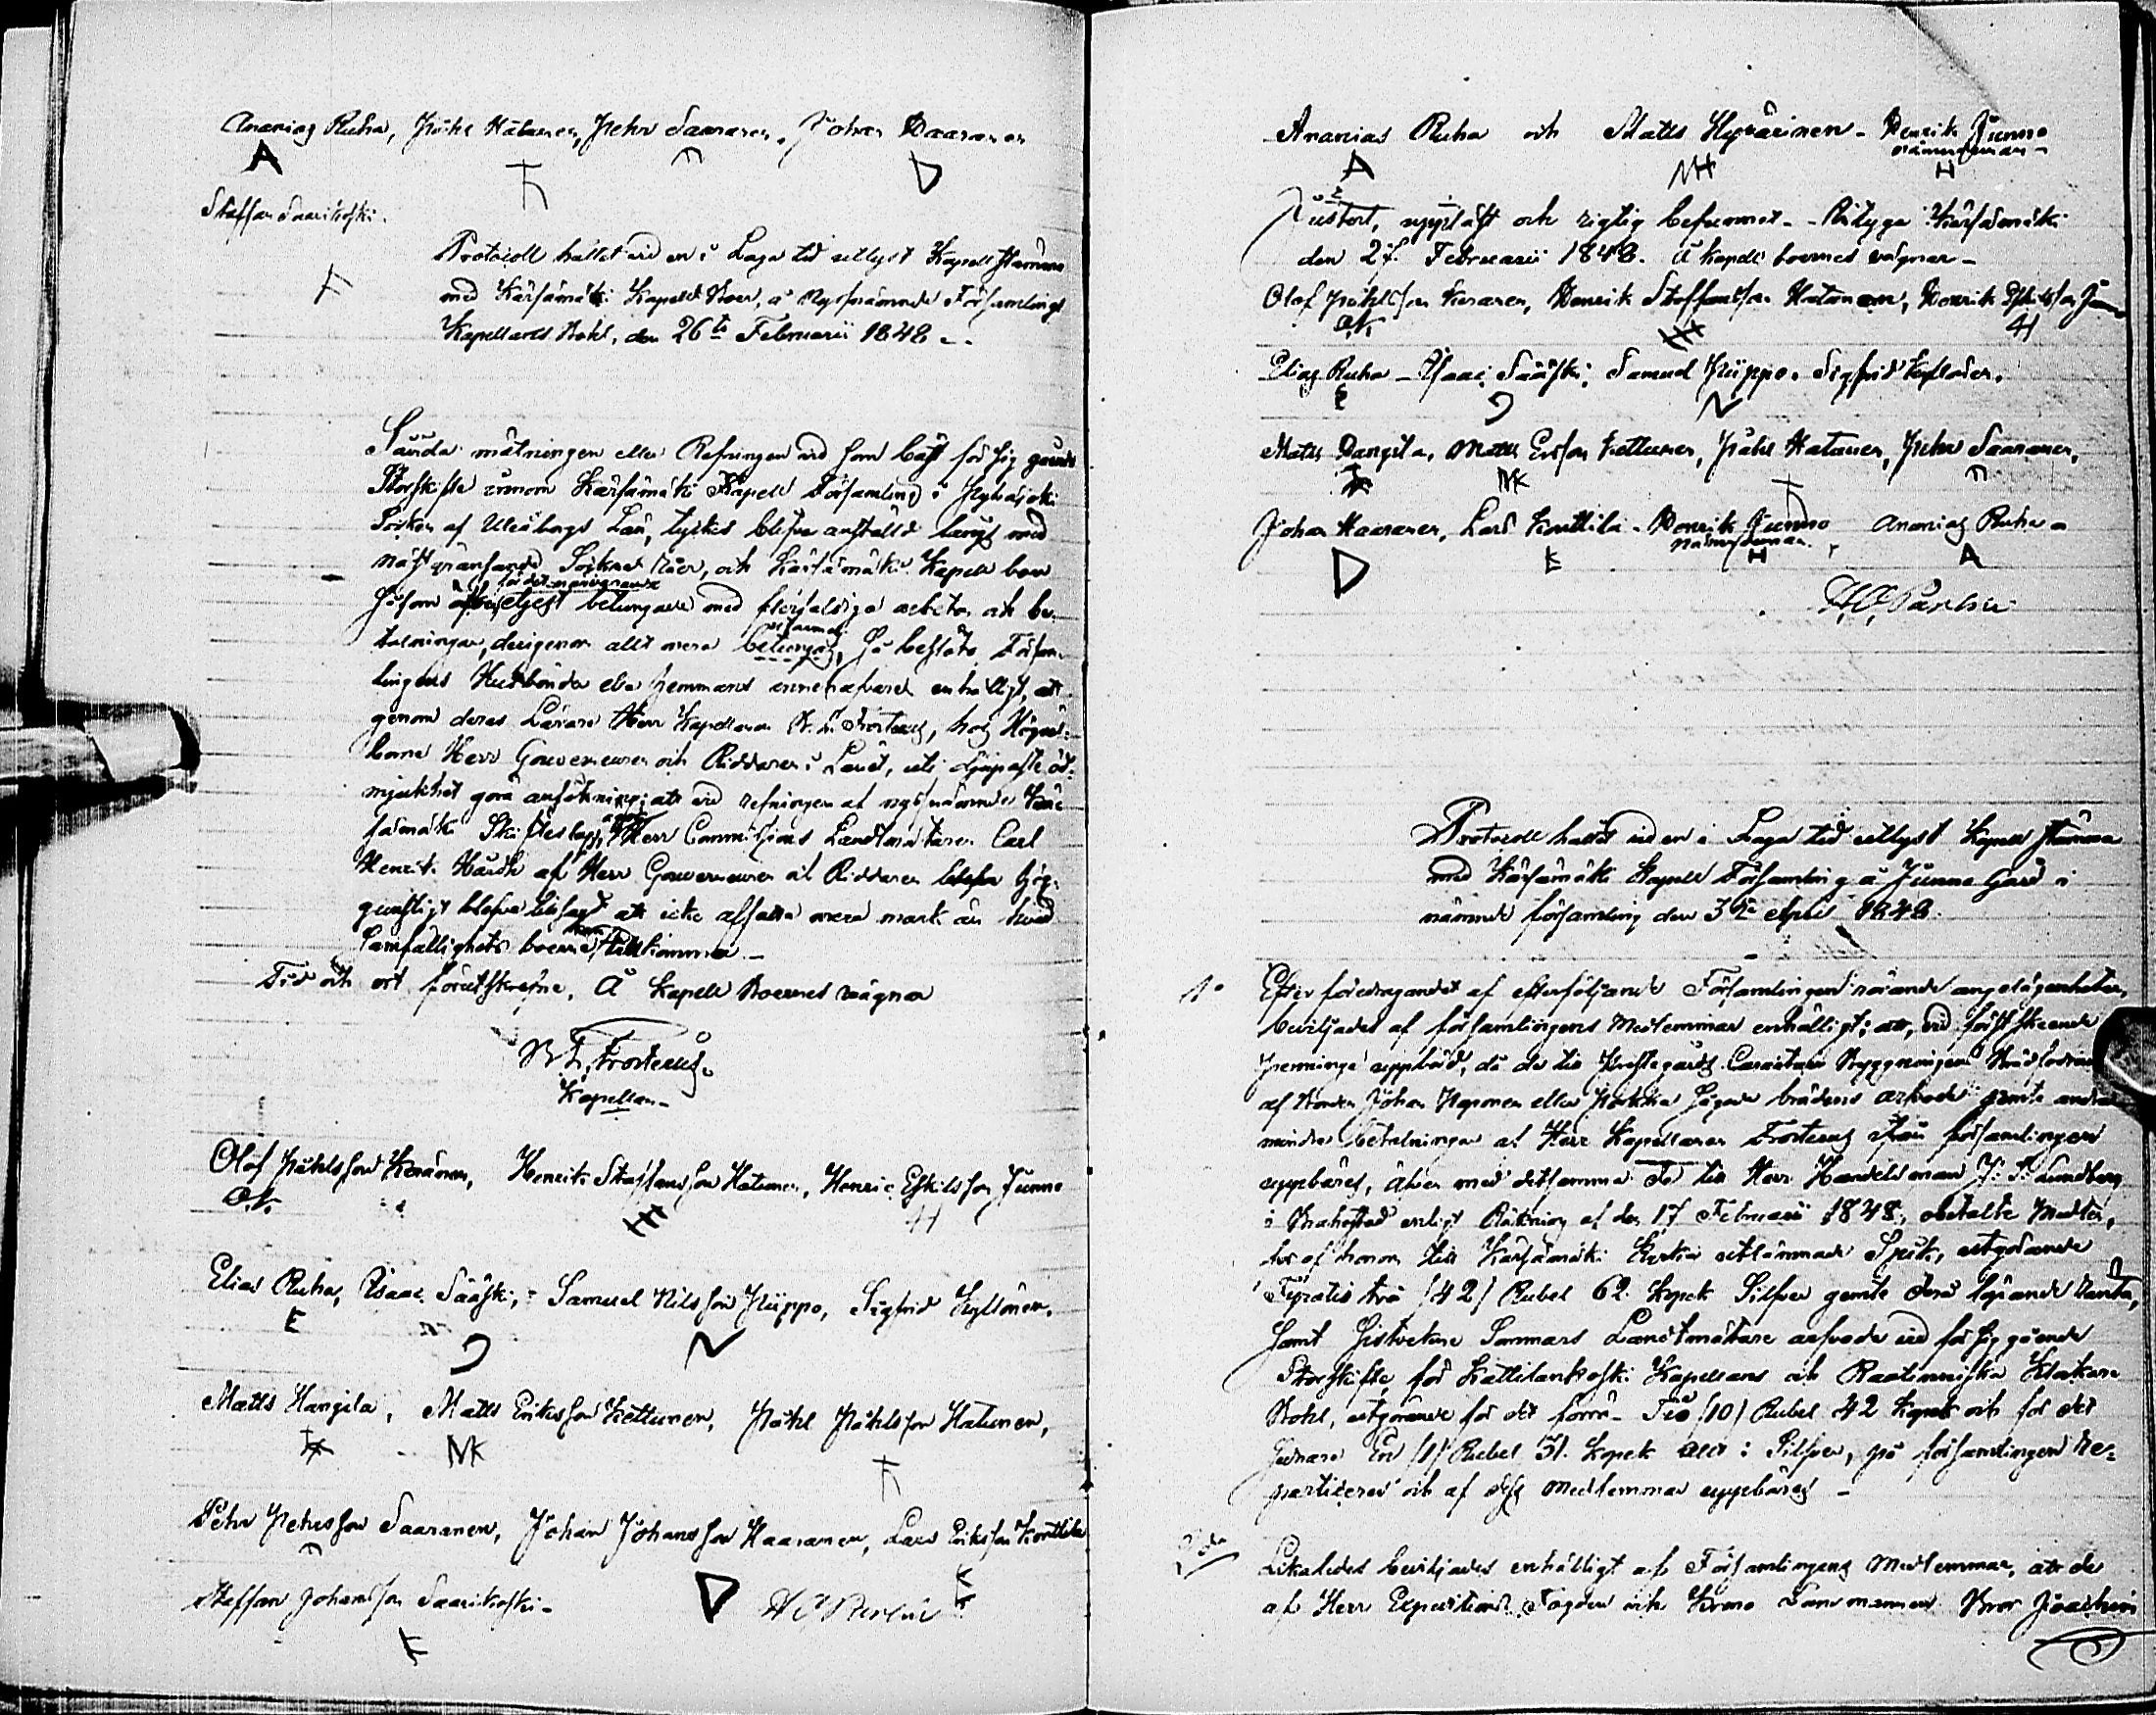 Ananias Ruha, Påhl Hatunen, Pehr Saaranen, Johan Haaranen
A
D
Staffan Saarikoski.
Protocoll hållet vid en i Laga tid utlyst Kapell stämma
med Kärsämäki Kapells Boer, å nyssnämnde Församlings
Kapellans Bohl, den 26te Februarii 1848.
mätningen eller Refningen vid som bäst för sig
Storskifte innom Kärsämäki Kapell Församling i Pyhäjoki
Socken af Uleåborgs Län, tyckes blifva anställd längs med
näst gränsande Sockne Råer, och Kärsämäki Kapell boer
för det närvarande
såsom betungade med flerfaldiga arbeten och be-
talningar, derigenom allt mera betungas, så beslöto Försam-
lingens Husbönder eller Hemmans innehafvare enhälligt, att
genom deras Lärare Herr Kapellanen Frosterus, hos Högväl-
borne Herr Gouverneuren och Riddaren i Länet, uti djupaste öd-
mjukhet göra ansökning; att vid refningen af nyssnämnde Kär-
sämäki Skifteslag, Herr Commissions Landtmätaren Carl
Henrik Hårdh af Herr Gouverneuren och Riddaren hög-
gunstligt blefve att icke affatta mera mark än hvad
Samfällighets boerne tillkommer.
Tid och ort förutskrefne. Å Kapell Boernes vägnar
Frosterus.
Kapellan.
Olof Påhlsson Keränen, Henrik Staffansson Hatunen, Henric Eskilsson Junno
O.K. H
Elias Ruha, Isaac Sääski, Samuel Nilsson Piippo, Sigfrid Kyllönen.
E
Matts Hangila, Matts Eriksson Kettunen, Påhl Påhlsson Hatunen,
MK
Pehr Pehrsson Saaranen, Johan Johansson Haaranen, Lars Eriksson Konttila
Staffan Johansson Saarikoski.
D
Ananias Ruha och Matts Hyvärinen. Henrik Junno
nämndeman
A MH H
Justert, uppläst och rigtig befunnet. Betyga Kärsämäki
den 27. Februarii 1848. Å Kapell boernes vägnar
Olof Påhlsson Keränen, Henrik Staffansson Hatunen, Henrik Eskilsson Junno
O.K. H
Elias Ruha, Isaac Sääski, Samuel Piippo, Sigfrid Kyllönen.
E
Matts Hangila, Matts Ersson Kettunen, Påhl Hatunen, Pehr Saaranen,
MK
Johan Haaranen, Lars Konttila, Henrik Junno, Ananias Ruha
nämndeman.
D E H A
Protocoll hållet vid en i Laga tid utlyst Kapell stämma
med Kärsämäki Kapell Församling å Junno Gård i
nämnde församling den April 1848.
1o Efter föredragandet af efterföljande Församlingen rörande angelägenheter,
beviljades af församlingens Medlemmar enhälligt; att, vid först skeende
Penninge uppbörd, då de till Prestegårds Byggningen
af Bonden Johan Haponen eller sågade bräders arfvode jemte andra
mindre betalningar af Herr Kapellanen Frosterus ifrån församlingen
uppbäres, äfven med detsamma de till Herr Handelsman J: S. Lundberg
i Brahestad enligt Räkning af den 17 Februarii 1848, obetalte Medlen,
för af honom till Kärsämäki Kyrka utlämnade Spik, utgörande
Fyratio två (42) Rubel 62. Kopek Silfver jemte dess löpande Ränta,
samt Landtmätare arfvode vid för sig gående
Storskifte, för Kattilankoski Kapellans och Klockare
Bohl, utgörande för det förra Tio (10) Rubel 42 Kopek och för det
sednare En (1) Rubel 51. Kopek allt i Silfver, på församlingen re-
particeras och af dess medlemmar uppbäres
2do Likaledes beviljades enhälligt af Församlingens Medlemmar, att de
af Herr Expeditions Fogden och Krono Länsmannen Bror Joachim